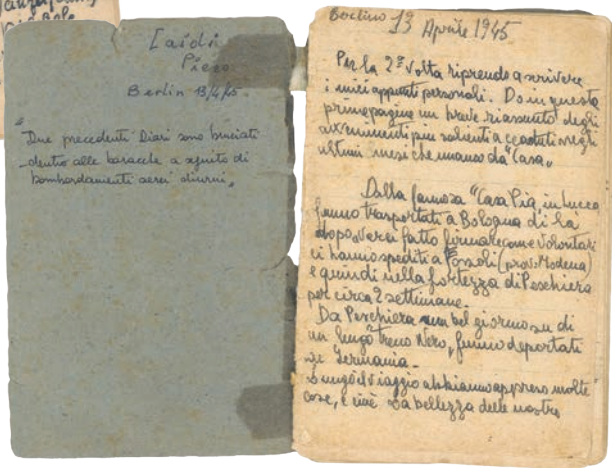 Piero
Berlin 13/4/45.
"Due precedenti Diari sono bruciati
dentro alle baracche a seguito di
bombardamenti aerei diurni"
Berlino 13 Aprile 1945
Per la 2ª volta riprendo a scrivere
i miei appunti personali. Do in questa
prima pagina un breve riassunto degli
avvenimenti più salienti accaduti negli
ultimi mesi che manco da "Casa"
Dalla famosa "Casa Pia" in Lucca
fummo trasportati a Bologna di là
dopo averci fatto firmare come volontari
ci hanno spediti a Fossoli (prov. Modena)
e quindi nella fortezza di Peschiera
per circa 2 settimane.
Da Peschiera un bel giorno su di
un lungo treno Nero, fummo deportati
in Germania.
Lungo il viaggio abbiamo appreso molte
cose, e cioè la bellezza delle nostre